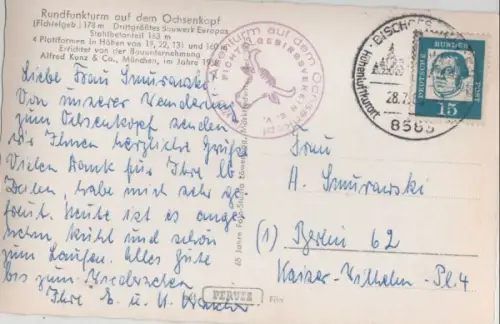 Rundfunkturm auf dem Ochsenkopf
(Fichtelgeb.) 178 m Drittgrößtes Bauwerk Europas
Stahlbetonteil 163 m
4 Plattformen in Höhen von 19, 22, 131 und 160 m
Errichtet von der Bauunternehmung
Alfred Kunz & Co., München, im Jahre
Liebe Frau Smurawski!
Von unserer Wanderung
zum Ochsenkopf senden
wir Ihnen herzliche Grüße
Vielen Dank für Ihre lb
Zeilen, habe mich sehr ge
freut. Heute ist es ange
nehm, kühl und schön
zum Laufen. Alles Gute
bis zum Wiedersehen
Ihre E. u. H.
turm auf dem Ochsenkopf
FICHTELGEBIRGSVEREIN E.V.
65 Jahre Foto-Studio
PERUTZ
Film
BISCHOFS
Höhenluftkurort
28.7.
8583
DEUTSCHE BUNDESPOST
15
Frau
H. Smurawski
(1) Berlin 62
Kaiser-Wilhelm-Pl. 4